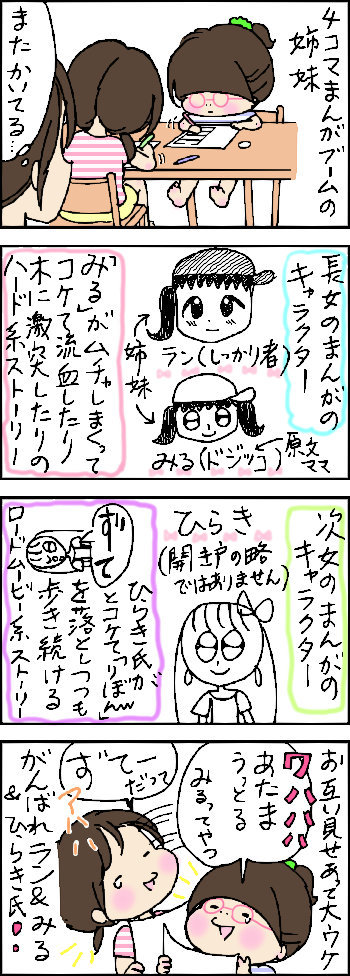 4コマまんがブームの
姉妹
またかいてる…
長女のまんがの
キャラクター
ラン(しっかり者)
姉妹
みる(ドジッコ)
原文
ママ
「みる」がムチャしまくって
コケて流血したり
木に激突したりの
ハード系ストーリー
次女のまんがの
キャラクター
ひらき
(開き戸の略
ではありません)
ひらき氏が
とコケて「りぼん」
を落としつつも
歩き続ける
ロードムービー系ストーリー
ずて
お互い見せあって大ウケ
ワハハハ
あたま
うっとる
みるってやつ
ずてー
だって
アハハ
がんばれラン&みる
&ひらき氏!!